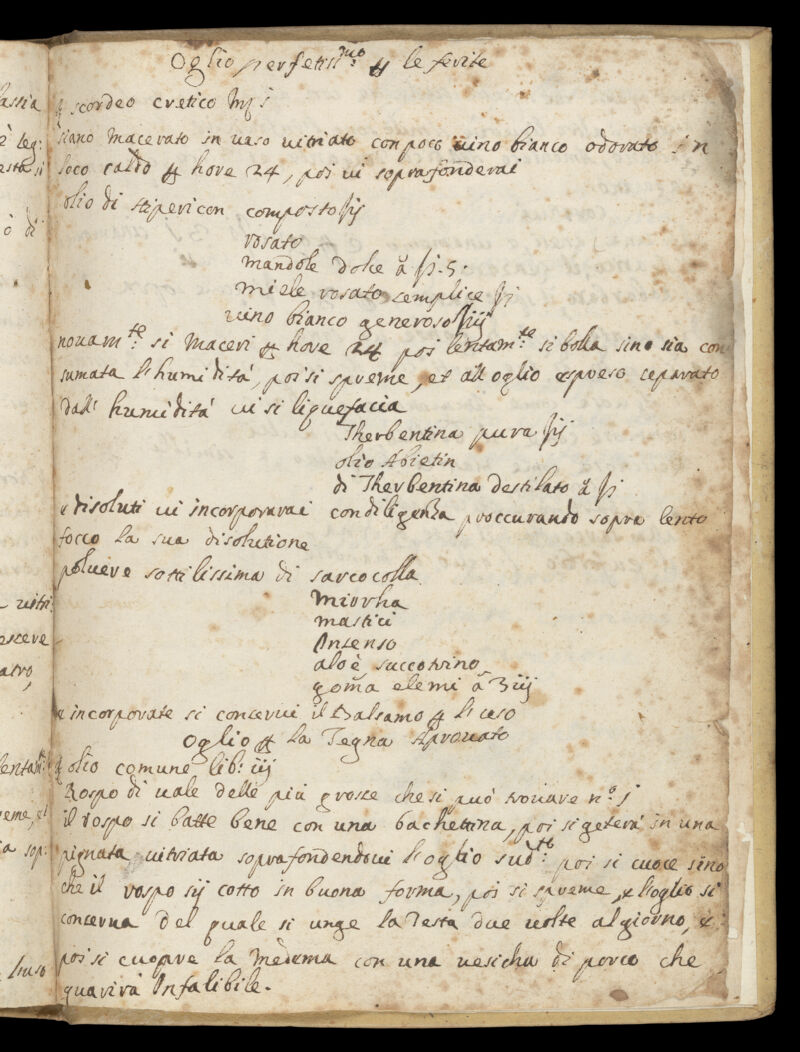 Oglio perfetis.mo p le ferite
scordeo cretico Mp j
siano Macerato in uaso uitriato con poco uino bianco odorato in
loco caldo p hore 24, poi ui soprafonderai
olio di Hipericon composto
rosato
mandole dolce ā
Miele rosato semplice
uino bianco generoso
nouam.te si Maceri p hore 24 poi lentam.te si bolla sino sia con
sumata l'humidità, poi si spreme, et all oglio espreso ceparato
dall' humidità ui si liquefacia
Therbentina pura
olio Abietin
di Therbentina destilato ā
e disoluti ui incorporarai con diligenza proccurando sopra lento
focco la sua disolutione
poluere sottilissima di sarcocolla
Mirrha
mastici
Insenso
aloè succotrino
gom̄a elemi ā ʒ iij
e incorporate si concerui il Balsamo p l'uso
Oglio p la Tegna Aprouato
olio comune lib: iij
Rospo di uale delle più grosse che si può trouare n.o j
il rospo si batte bene con una bachettina, poi si geterà in una
pignata uitriata soprafondendoui l'oglio sud.to poi si cuoce sino
che il rospo sij cotto in buona forma, poi si spreme, e l'oglio si
concerua del quale si unge la Testa due uolte al giorno, e
poi si cuopre la medema con una uesicha di porco che
guarirà Infalibile.